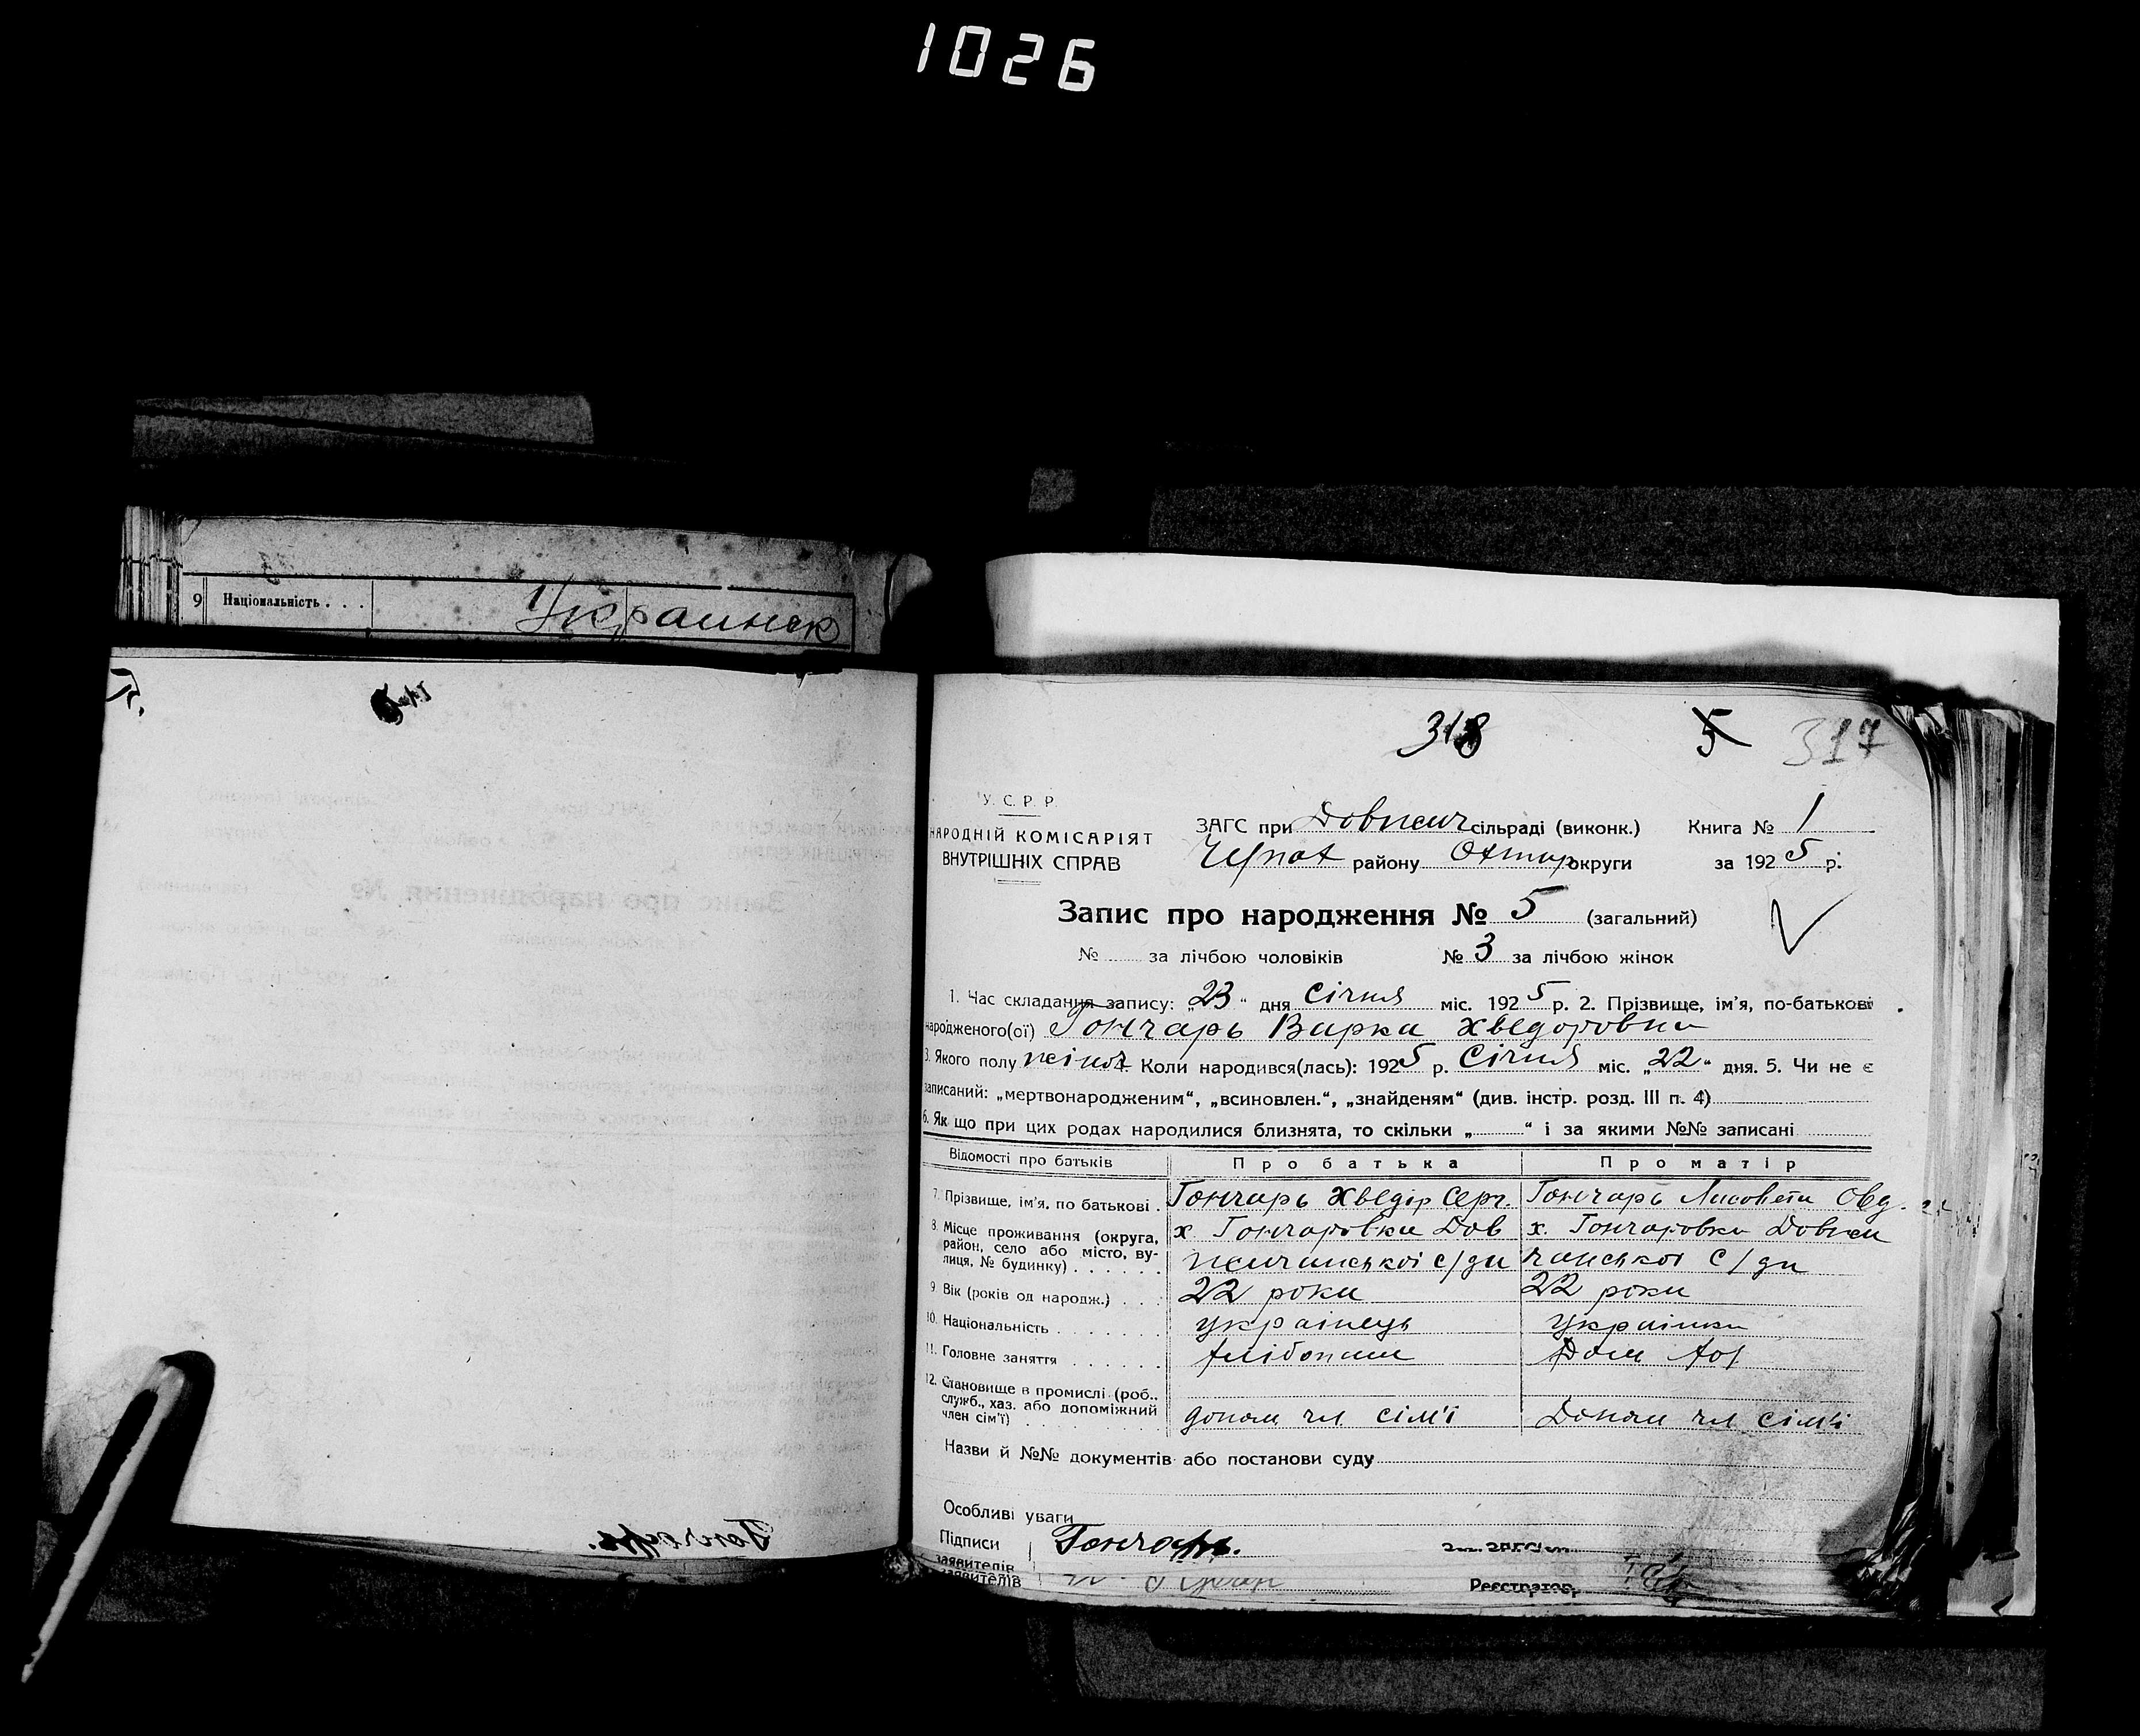 1026
9 Національність . . . Украинск
318 5 317
У. С. Р. Р.
НАРОДНІЙ КОМІСАРІЯТ
ВНУТРІШНІХ СПРАВ
ЗАГС при Довжич сільраді (виконк.) Книга № 1
району Охтир округи за 1925 р.
Запис про народження № 5 (загальний)
№ за лічбою чоловіків № 3 за лічбою жінок
1. Час складання запису: „23“ дня Січня міс. 1925 р. 2. Прізвище, ім'я, по-батькові
народженого(ої) Гончарь Варка Хведоровна
3. Якого полу жіноч 4. Коли народився(лась): 1925 р. Січня міс. „22“ дня. 5. Чи не є
записаний: „мертвонародженим“, „всиновлен.“, „знайденям“ (див. інстр. розд. III п. 4)
6. Як що при цих родах народилися близнята, то скільки „ “ і за якими №№ записані
Відомості про батьків Про батька Про матір
7. Прізвище, ім'я, по батькові . Гончарь Хведір Серг. Гончарь Лисовета Овд.
8. Місце проживання (округа, район, село або місто, вулиця, № будинку) . . . . . . х. Гончаровка Довжичанської с/ди х. Гончаровка Довжичанської с/ди
9. Вік (років од народж.) . . . 22 роки 22 роки
10. Національність . . . . . . . українець українка
11. Головне заняття . . . . . . хлібопаш Дом хоз
12. Становище в промислі (роб., служб., хаз. або допоміжний член сім'ї) . . . . . . допом чл сім'ї Допом чл сім'ї
Назви й №№ документів або постанови суду
Особливі уваги
Підписи Гончарь.
заявителів
заявителів Реєстратор